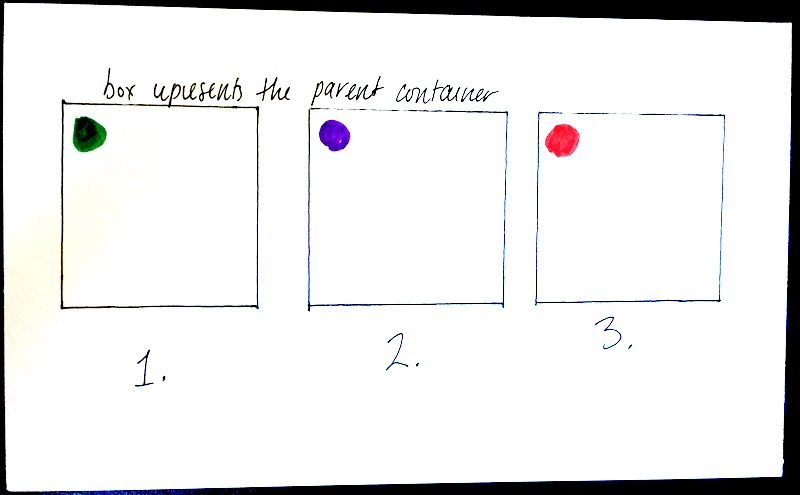 box represents the parent container
1.
2.
3.